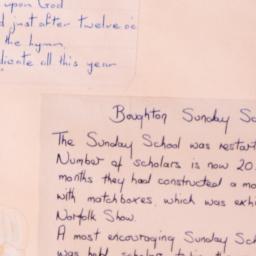 upon God
just after twelve o'c
the hymn,
dicate all this year
Boughton Sunday Sc
The Sunday School was restart
Number of scholars is now 20.
months they had constructed a mo
with matchboxes, which was exhi
Norfolk Show.
A most encouraging Sunday Sch
was held, scholars taking the